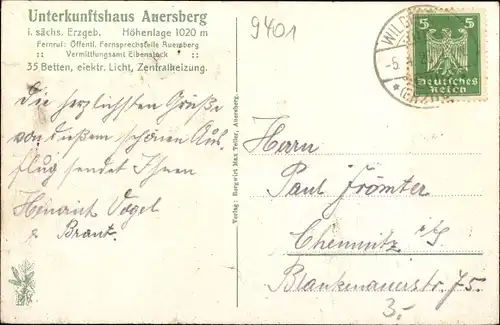 Unterkunftshaus Auersberg
i. sächs. Erzgeb. Höhenlage 1020 m
Fernruf: Öffentl. Fernsprechstelle Auersberg
:: Vermittlungsamt Eibenstock ::
35 Betten, elektr. Licht, Zentralheizung.
9401
5 5
Deutsches
Reich
Die herzlichsten Grüße
von diesem schönen Aus-
flug sendet Ihnen
Heinrich Vogel
& Braut.
Verlag: Bergwirt Max Teller, Auersberg.
Herrn
Paul Frömter
Chemnitz i/S
Blankenauerstr. 75.
3.-